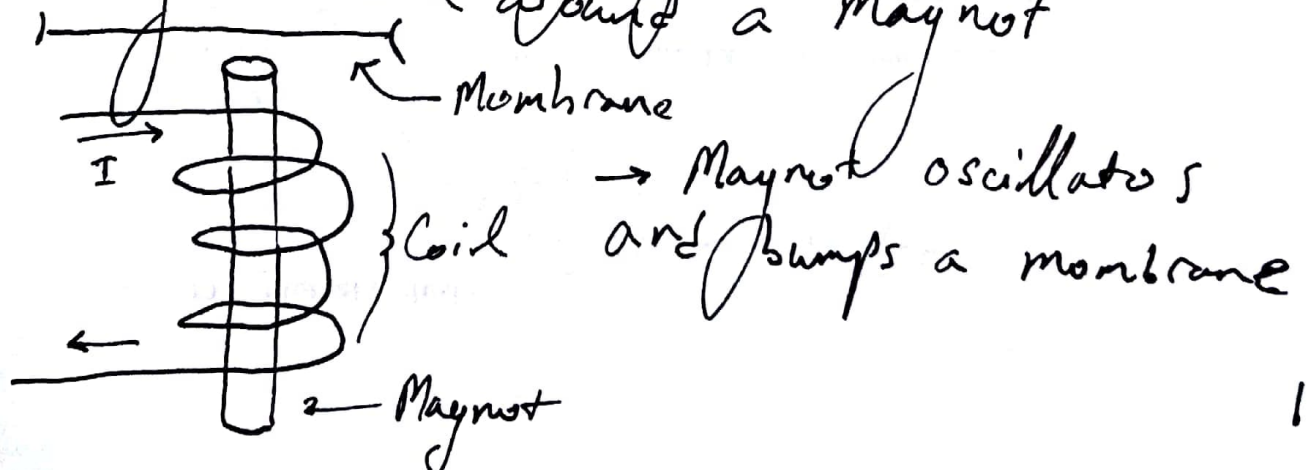 wound a Magnet
Membrane
I
→ Magnet oscillates
Coil
and bumps a membrane
Magnet
1